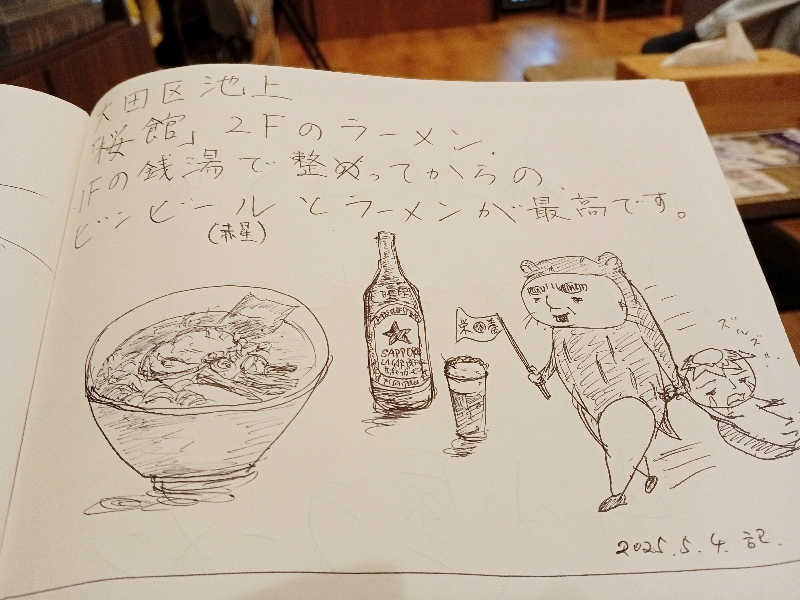 大田区池上
桜館」2Fのラーメン、
1Fの銭湯で整めってからの、
ビンビールとラーメンが最高です。
(赤星)
SAPPORO
LAGER
ズルズ
2025.5.4. 記.